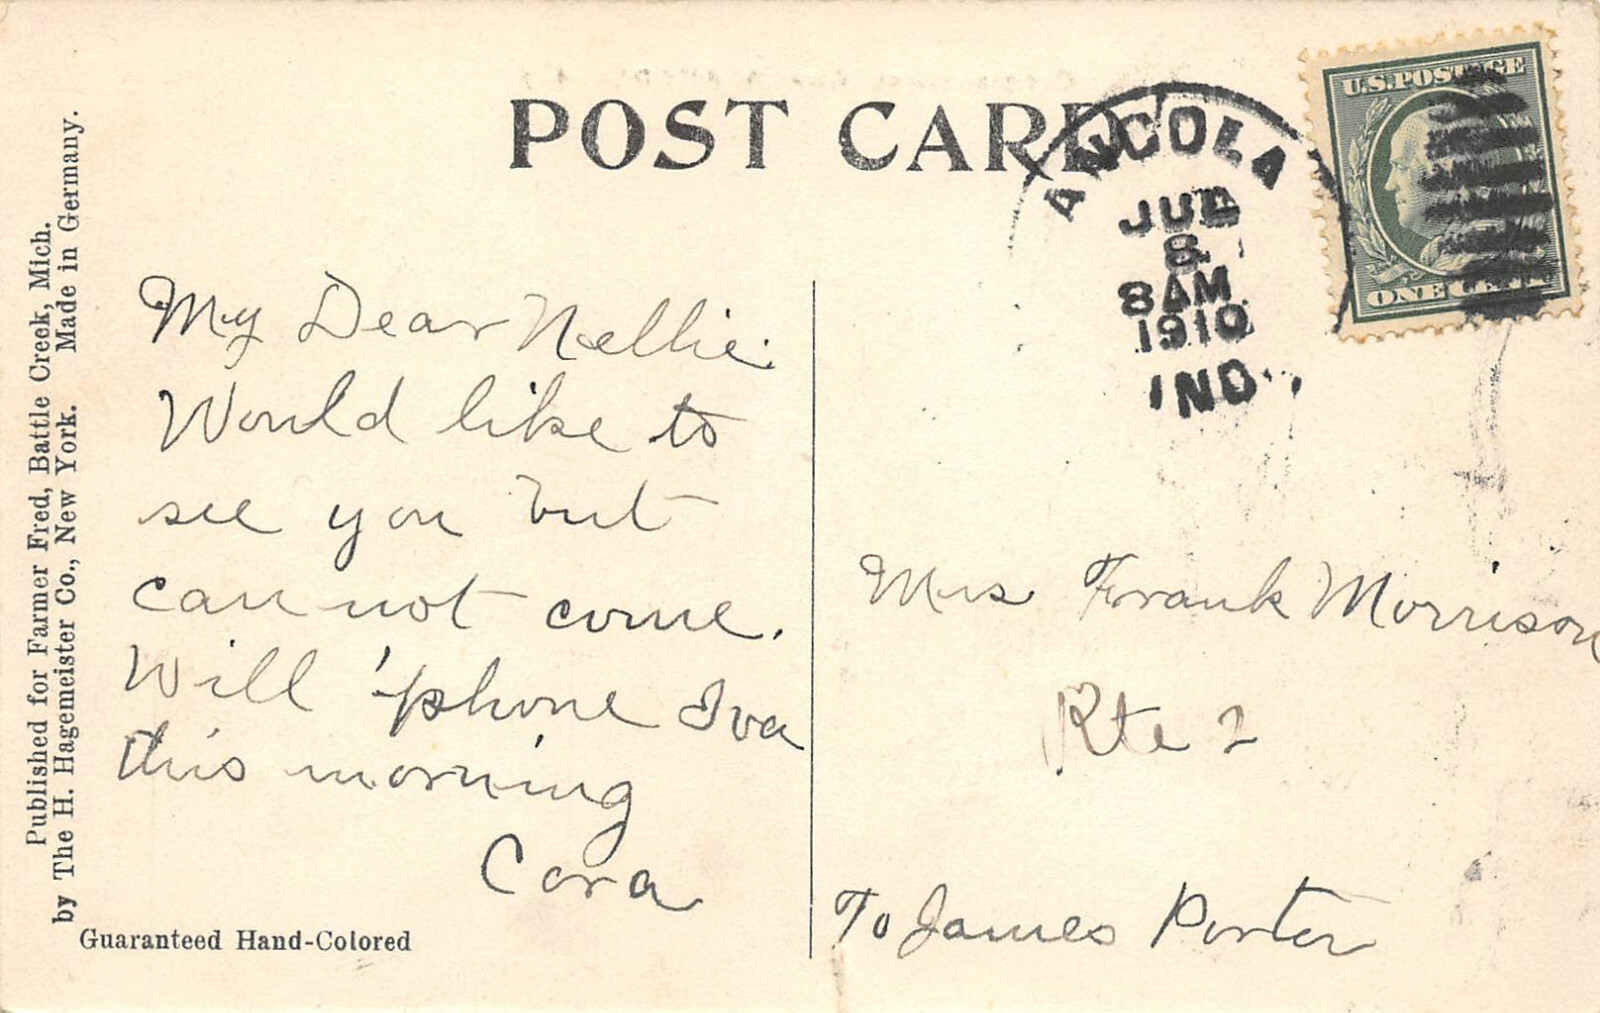 POST CARD
ANGOLA
JUL
8
8AM
1910
IND.
U.S.POSTAGE
ONE CENT
My Dear Nellie:
Would like to
see you but
can not come.
Will 'phone Iva
this morning
Cora
Mrs Frank Morrison
Rte 2
To James Porter
Published for Farmer Fred, Battle Creek, Mich.
by The H. Hagemeister Co., New York. Made in Germany.
Guaranteed Hand-Colored